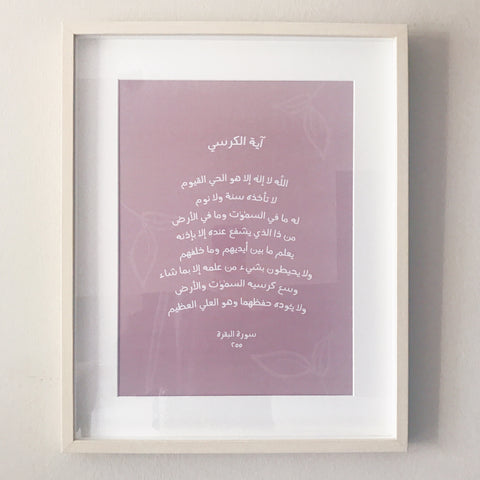 آية الكرسي
الله لا إله إلا هو الحي القيوم
لا تأخذه سنة ولا نوم
له ما في السموٰت وما في الأرض
من ذا الذي يشفع عنده إلا بإذنه
يعلم ما بين أيديهم وما خلفهم
ولا يحيطون بشيء من علمه إلا بما شاء
وسع كرسيه السموٰت والأرض
ولا يئوده حفظهما وهو العلي العظيم
سورة البقرة
٢٥٥